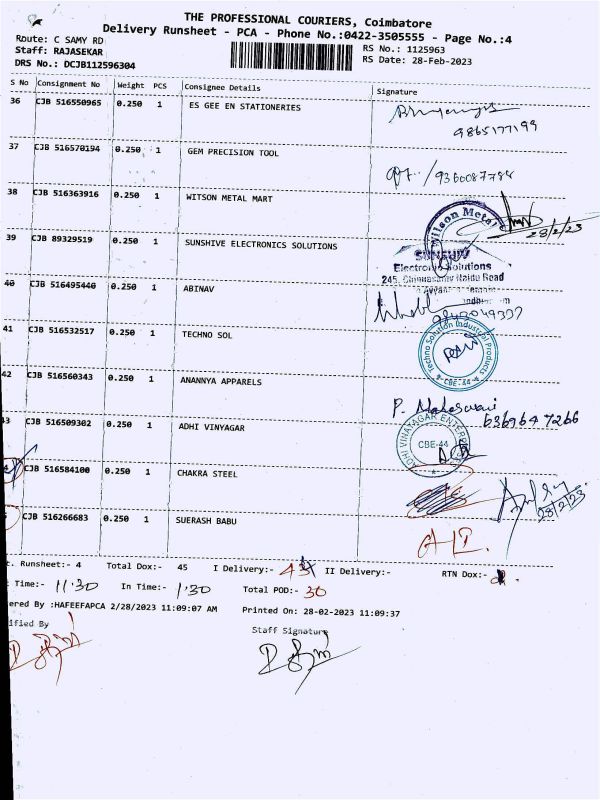 THE PROFESSIONAL COURIERS, Coimbatore
Delivery Runsheet - PCA - Phone No.:0422-3505555 - Page No.:4
Route: C SAMY RD
RS No.: 1125963
Staff: RAJASEKAR
RS Date: 28-Feb-2023
DRS No.: DCJB112596304
S No Consignment No Weight PCS Consignee Details Signature
36 CJB 516550965 0.250 1 ES GEE EN STATIONERIES
9865177199
37 CJB 516570194 0.250 1 GEM PRECISION TOOL
9360087784
38 CJB 516363916 0.250 1 WITSON METAL MART
Wilson Metal
28/2/23
39 CJB 89329519 0.250 1 SUNSHIVE ELECTRONICS SOLUTIONS
Electronic Solutions
245, Chinnasamy Naidu Road
40 CJB 516495440 0.250 1 ABINAV
41 CJB 516532517 0.250 1 TECHNO SOL
Techno Solution Industrial Products
CBE-44
42 CJB 516560343 0.250 1 ANANNYA APPARELS
P. Maheswari
6369647266
43 CJB 516509302 0.250 1 ADHI VINYAGAR
ADHI VINAYAGAR ENTERPRISES
CBE-44
CJB 516584100 0.250 1 CHAKRA STEEL
28/2/23
CJB 516266683 0.250 1 SUERASH BABU
Runsheet:- 4 Total Dox:- 45 I Delivery:- II Delivery:- RTN Dox:-
Time:- 11:30 In Time:- 1:30 Total POD:- 30
ered By :HAFEEFAPCA 2/28/2023 11:09:07 AM Printed On: 28-02-2023 11:09:37
ified By
Staff Signature